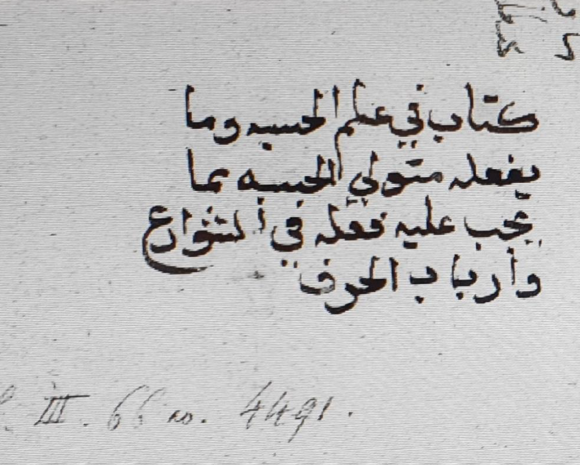 كتاب في علم الحسبه وما
يفعله متولي الحسبه بما
يجب عليه فعله في الشوارع
وأرباب الحرف
III. 66 no. 4491.